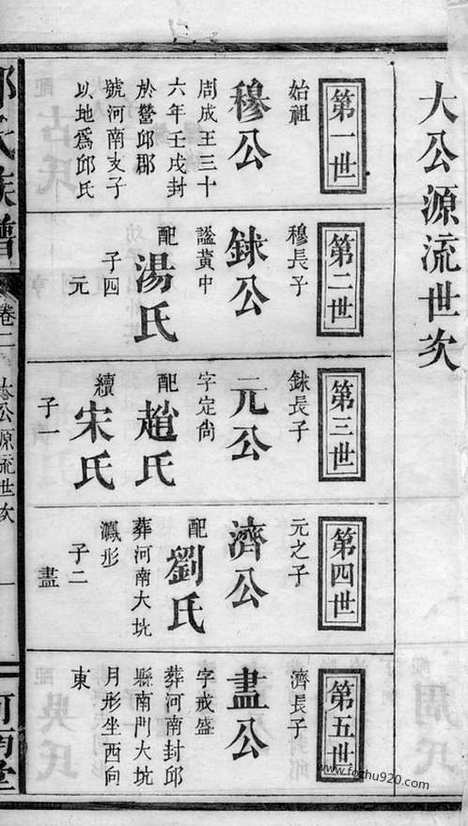 大公源流世次
第一世
始祖
穆公
周成王三十
六年壬戌封
於營邱郡
號河南支子
以地爲邱氏
第二世
穆長子
銇公
諡黃中
配湯氏
子四
元
第三世
銇長子
元公
字定尚
配趙氏
續宋氏
子一
第四世
元之子
濟公
配劉氏
葬河南大坑
鳳形
子二
晝
第五世
濟長子
晝公
字戒盛
葬河南封邱
縣南門大坑
月形坐西向
東
氏族譜
卷一
公源流世次
一
河南堂
www.fozhu920.com